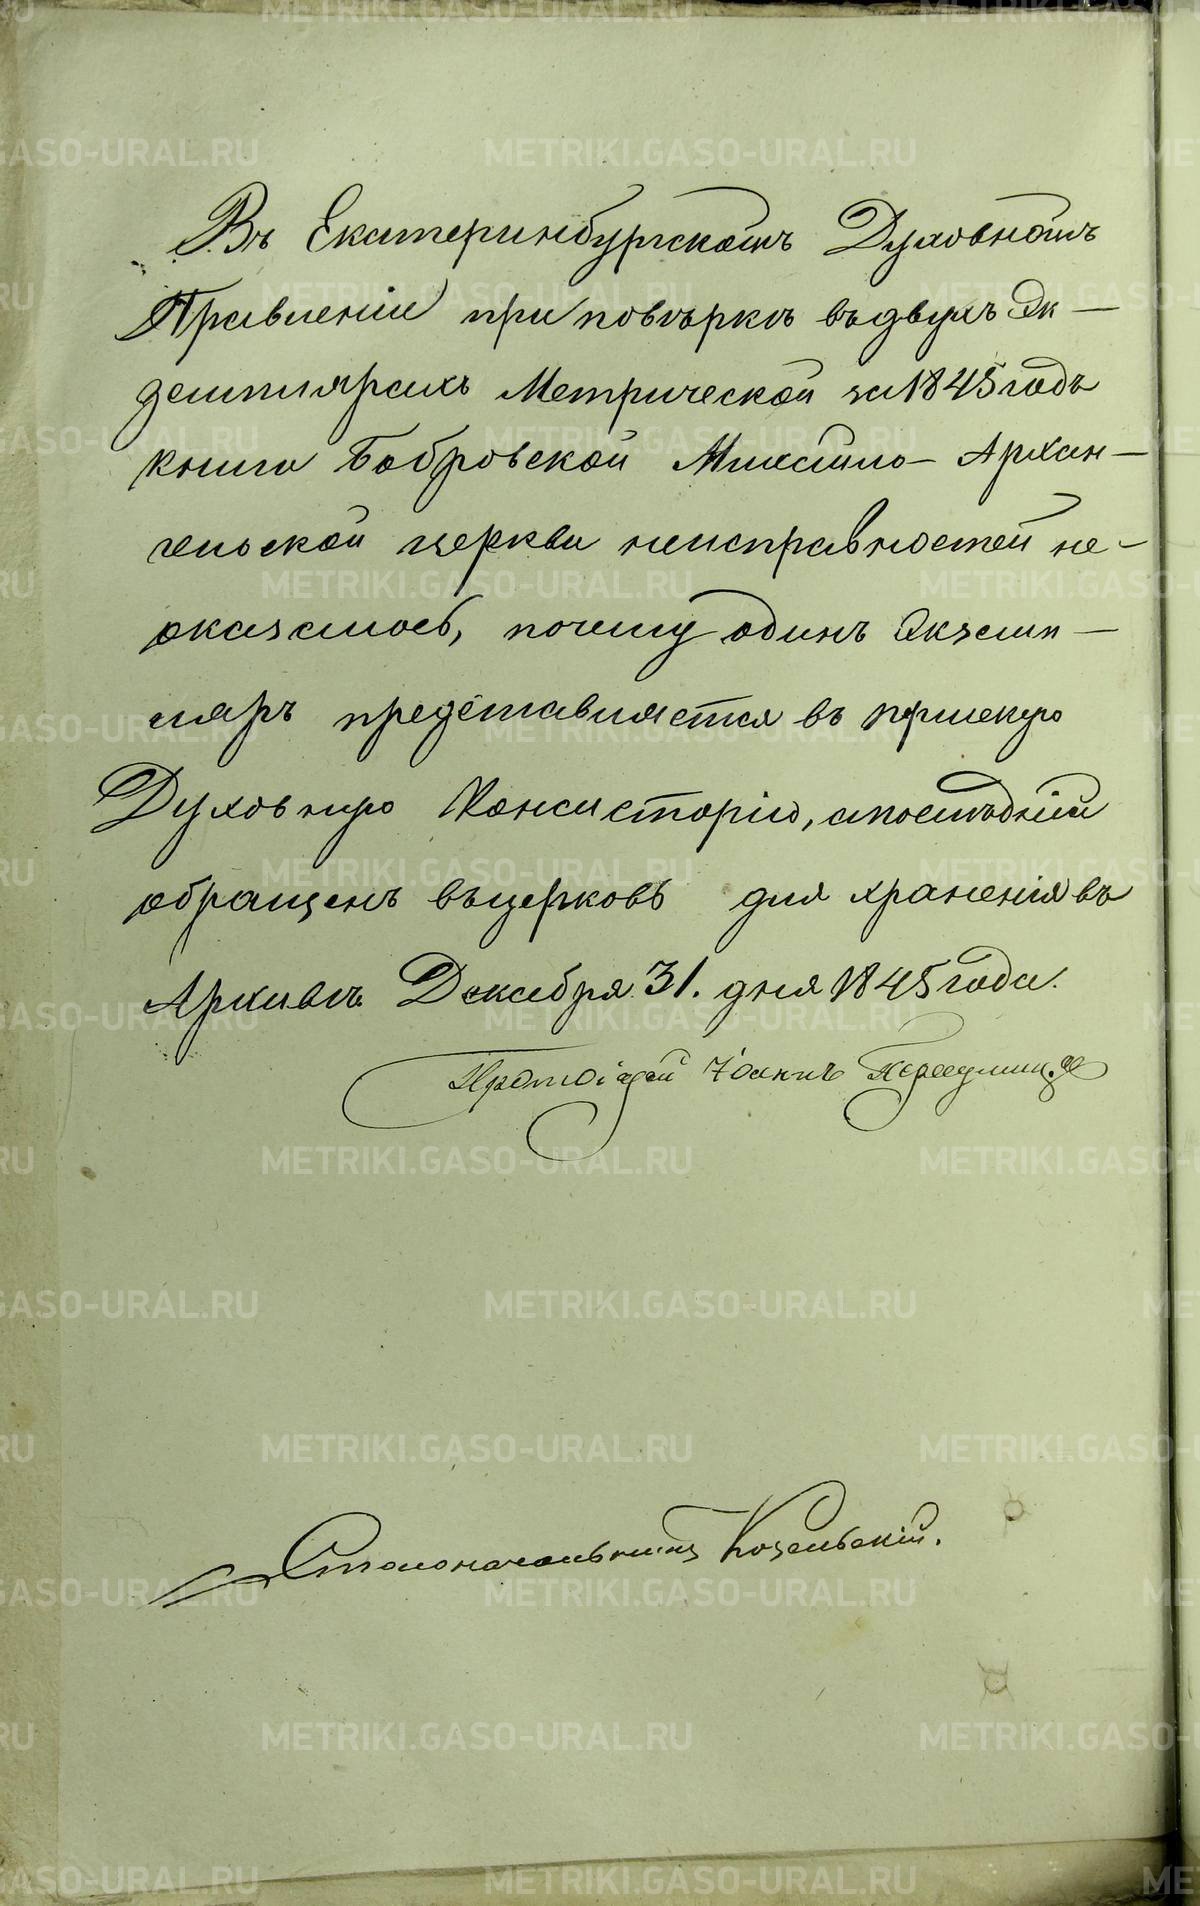 Въ Екатеринбургскомъ Духовномъ
Правленіи при повѣркѣ въ двухъ Эк-
земплярахъ Метрической за 1845 годъ
книги Бобровской Михаило-Архан-
гельской церкви неисправностей не-
оказалось, почему одинъ Экземп-
ляръ представляется въ Пермскую
Духовную Консисторію, а послѣдній
обращенъ въ церковь для храненія въ
Архивѣ. Декабря 31. дня 1845 года.
Протоіерей Іоаннъ
Столоначальникъ Козельскій.
METRIKI.GASO-URAL.RU